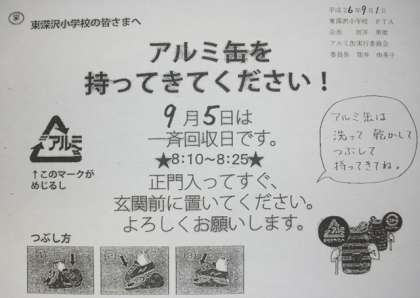 東深沢小学校の皆さまへ
平成26年9月1日
東深沢小学校 PTA
アルミ缶実行委員会
アルミ缶を
持ってきてください！
9月5日は
一斉回収日です。
★8:10～8:25★
正門入ってすぐ、
玄関前に置いてください。
よろしくお願いします。
アルミ
↑このマークが
めじるし
アルミ缶は
洗って 乾かして
つぶして
持ってきてね。
つぶし方
アルミ